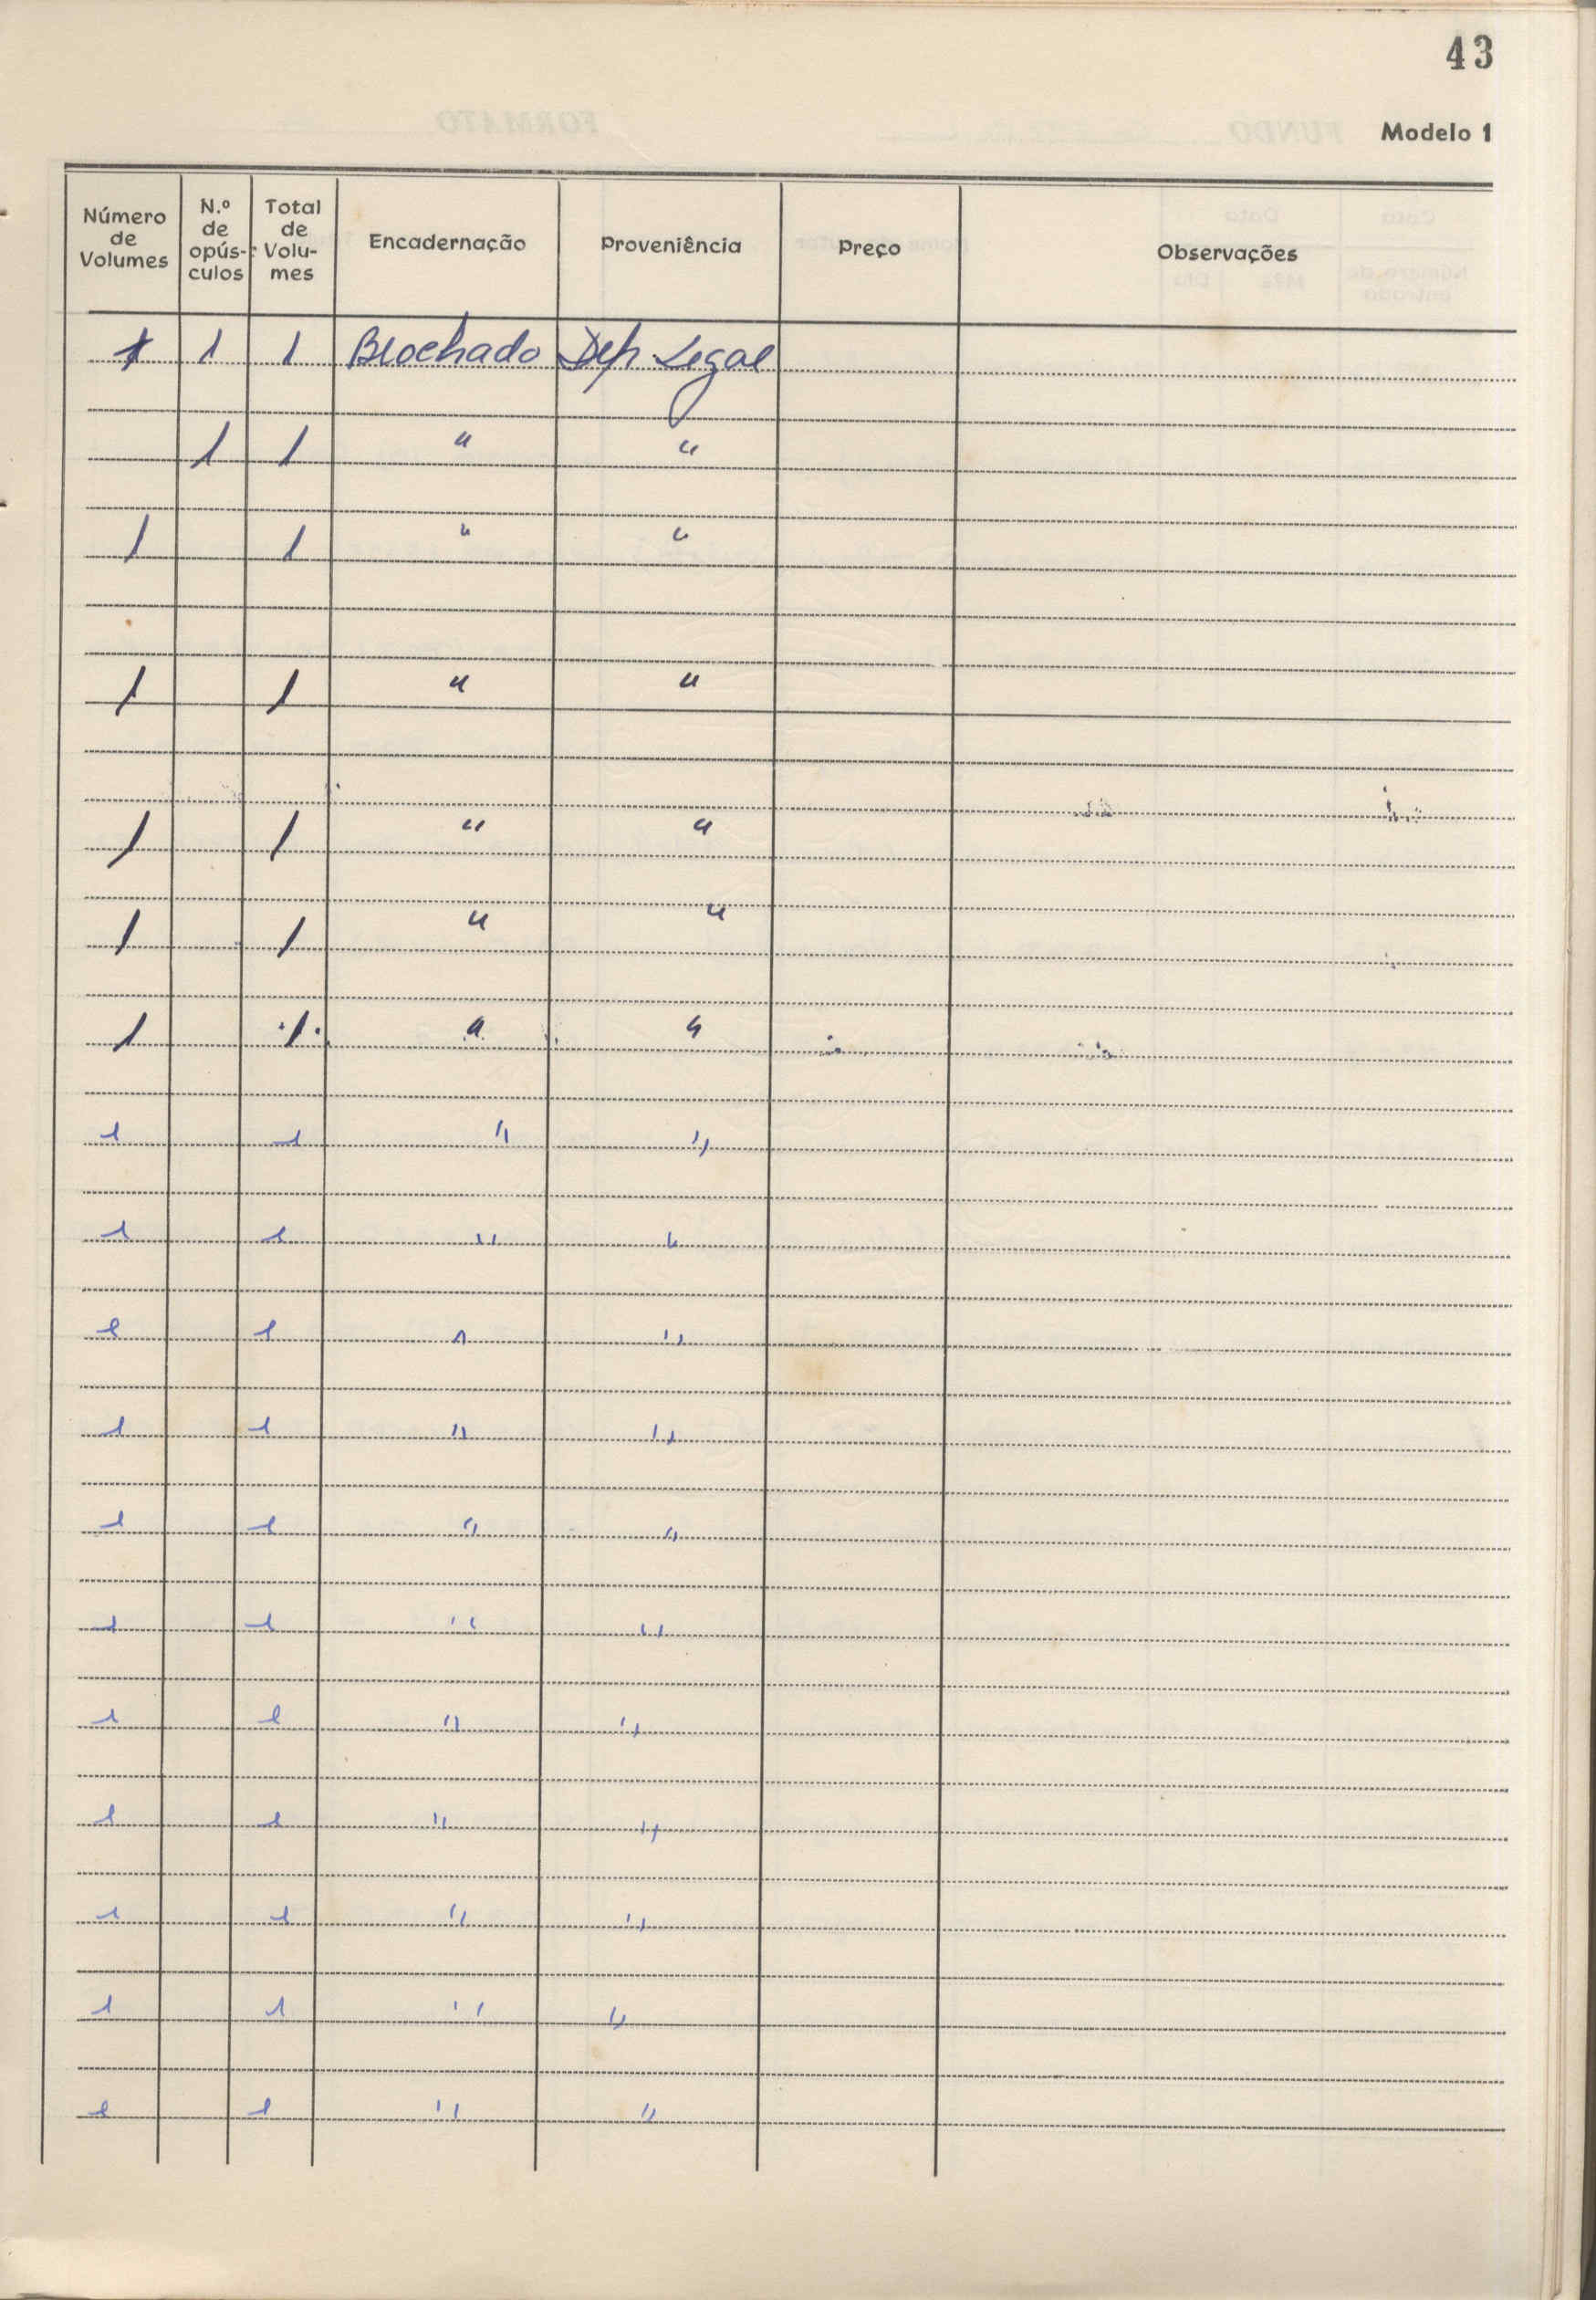 43
Modelo 1
Número de Volumes | N.º de opús-culos | Total de Volu-mes | Encadernação | Proveniência | Preço | Observações
1 | 1 | 1 | Brochado | Dep. Legal
1 | 1 | " | "
1 | 1 | " | "
1 | 1 | " | "
1 | 1 | " | "
1 | 1 | " | "
1 | 1 | " | "
1 | 1 | " | "
1 | 1 | " | "
1 | 1 | " | "
1 | 1 | " | "
1 | 1 | " | "
1 | 1 | " | "
1 | 1 | " | "
1 | 1 | " | "
1 | 1 | " | "
1 | 1 | " | "
1 | 1 | " | "